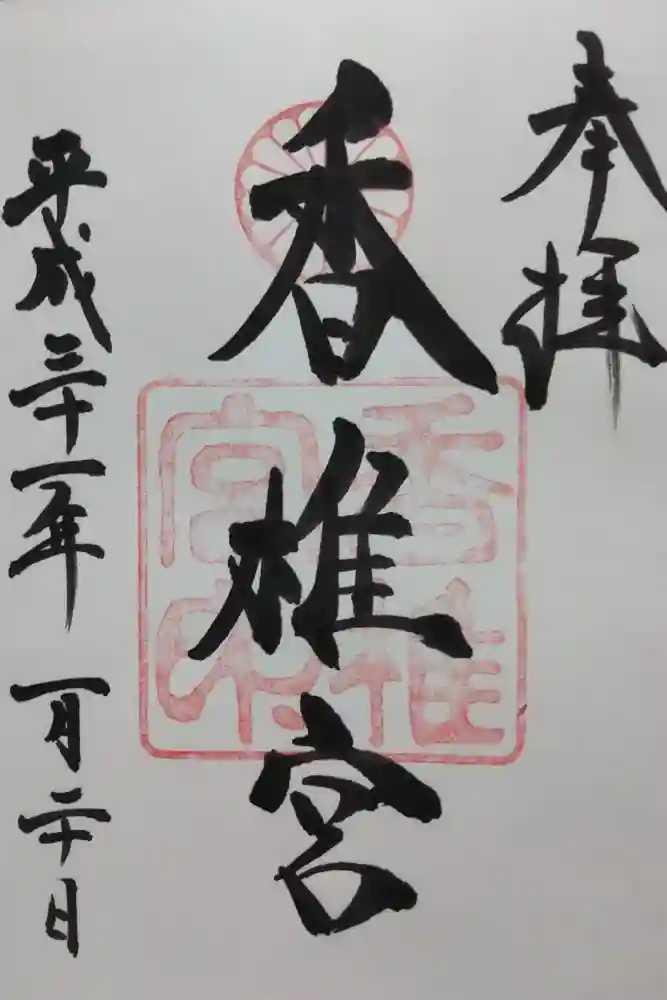 奉拝
香椎宮
香椎宮印
平成三十一年 一月二十日